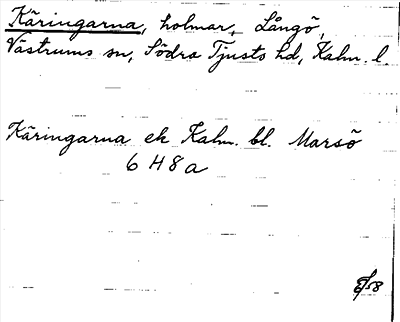 Käringarna, holmar, Långö,
Västrums sn, Södra Tjusts hd, Kalm. l.
Käringarna ek Kalm. bl. Marsö
6 H 8 a